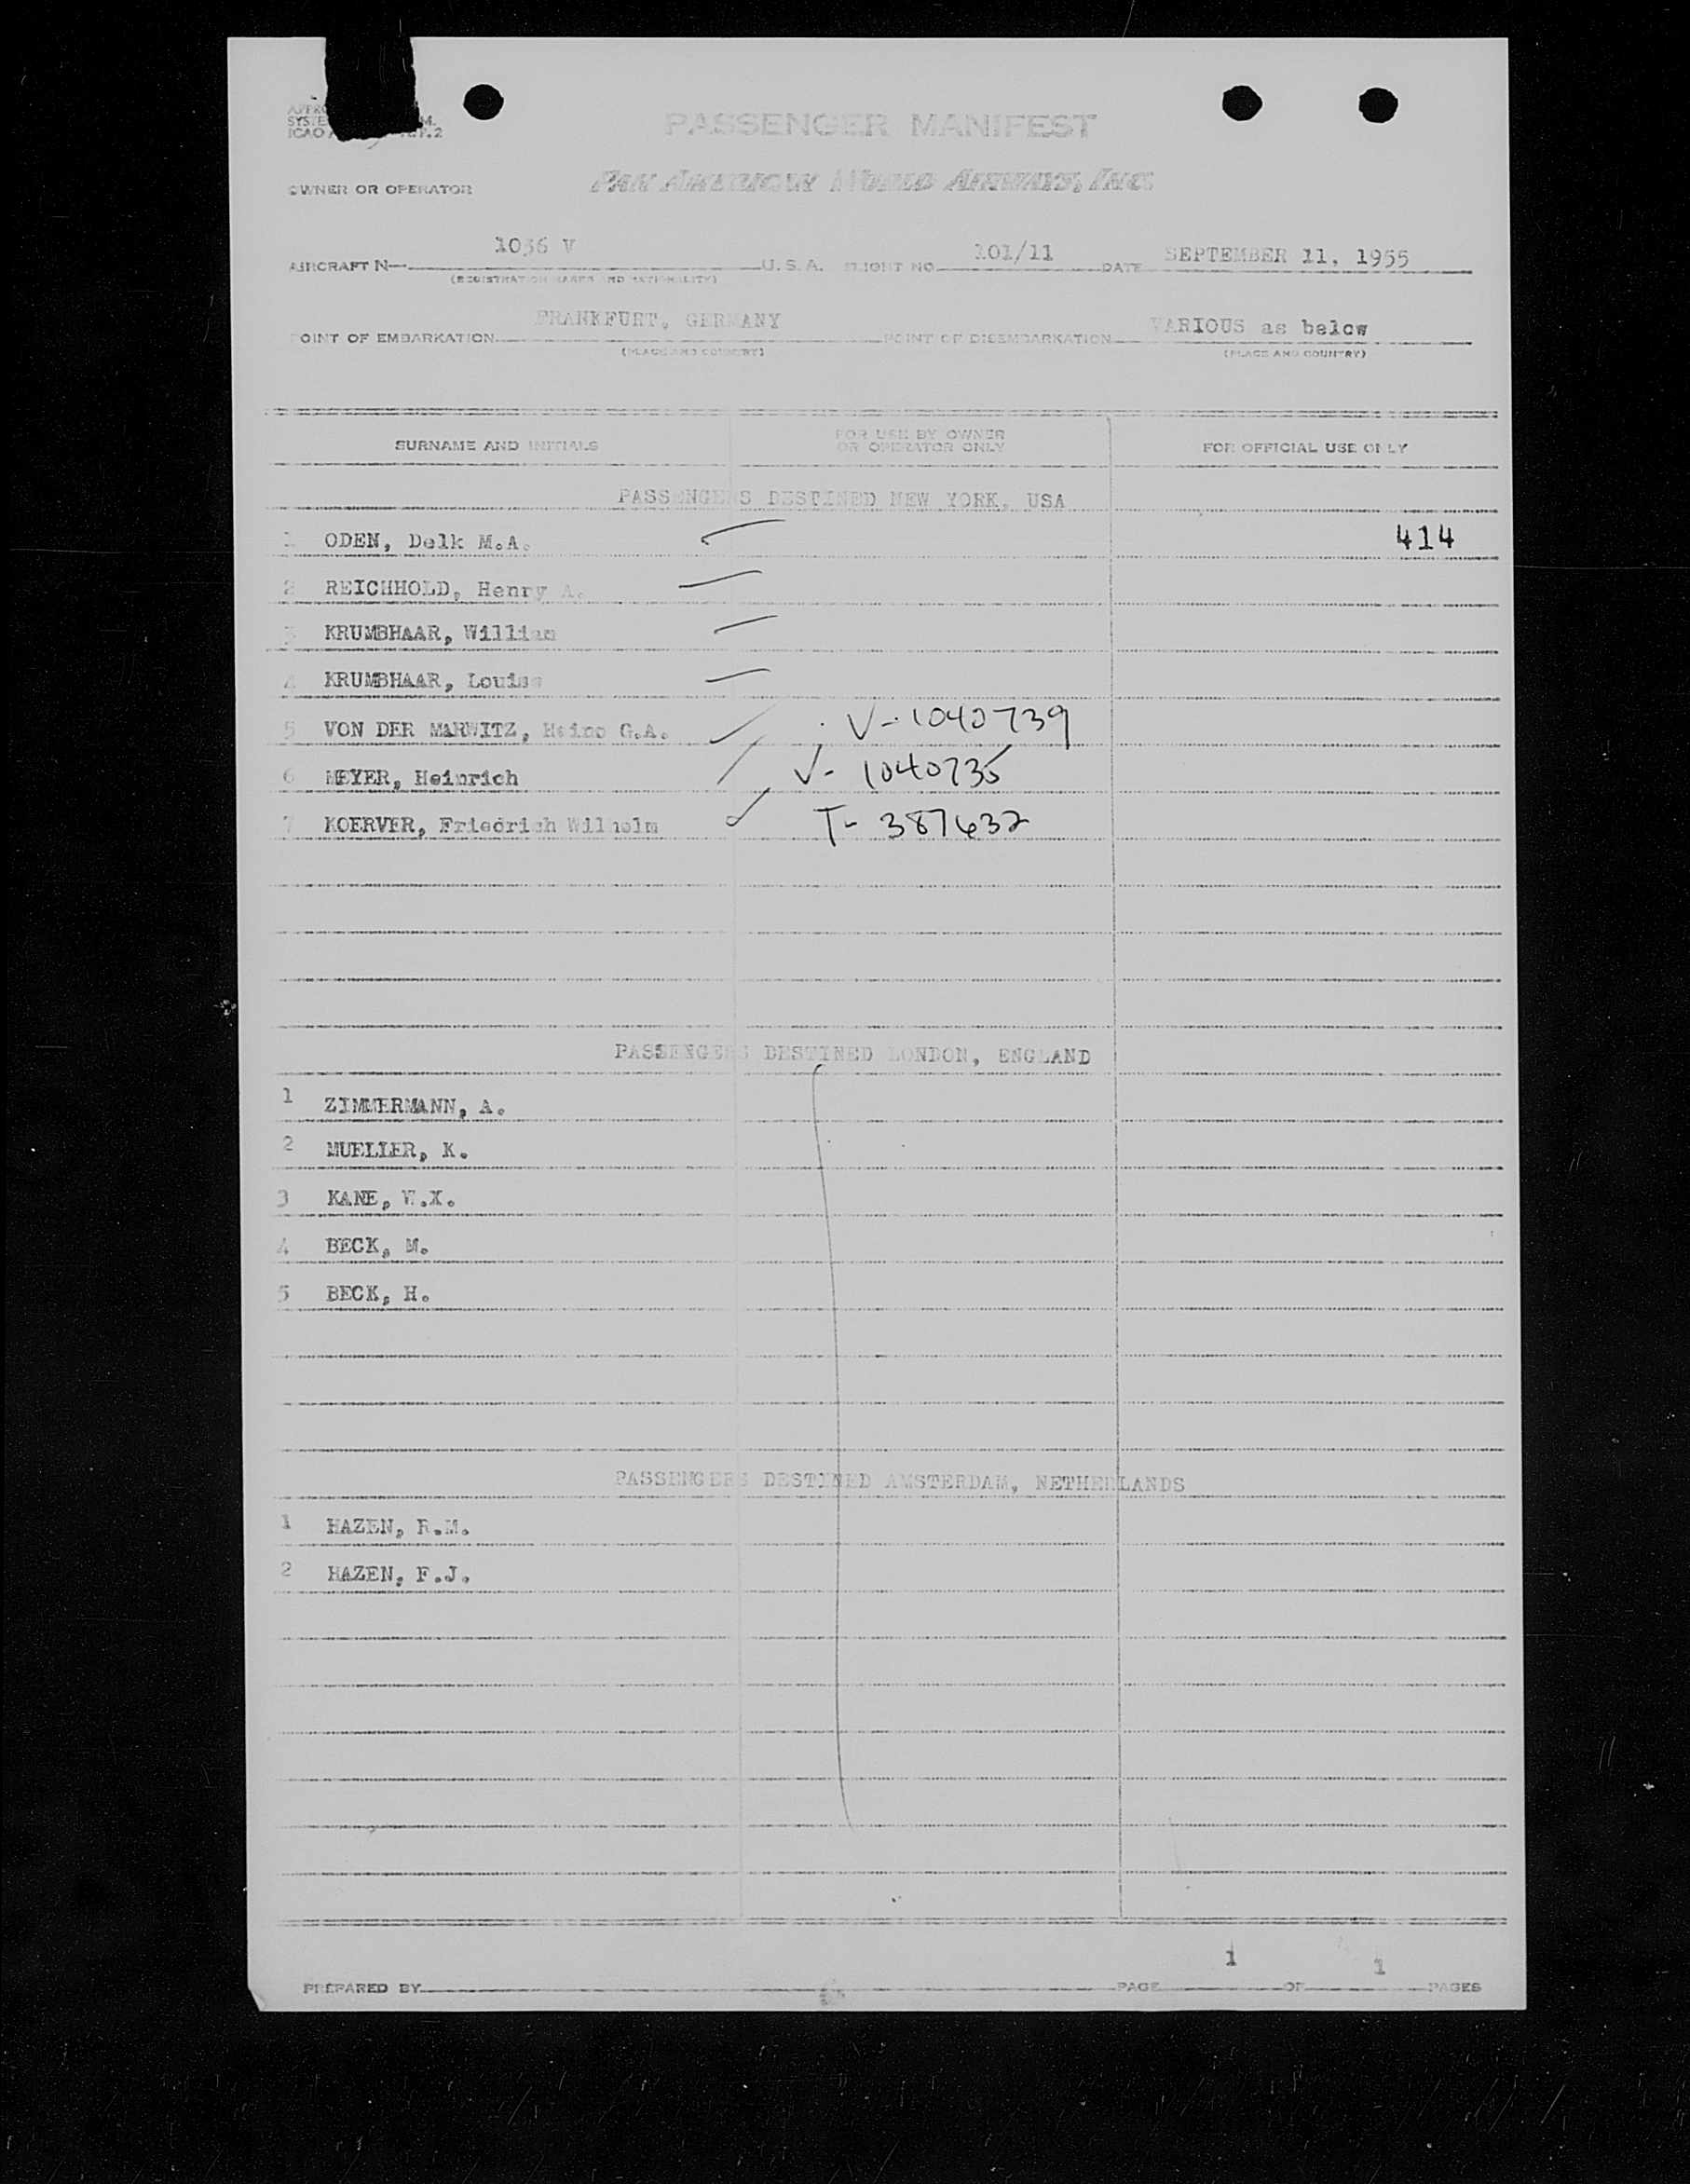 PASSENGER MANIFEST
OWNER OR OPERATOR PAN AMERICAN WORLD AIRWAYS, INC.
AIRCRAFT N— 1036 V U.S.A. FLIGHT NO. 101/11 DATE SEPTEMBER 11, 1955
(REGISTRATION MARKS AND NATIONALITY)
POINT OF EMBARKATION FRANKFURT, GERMANY POINT OF DISEMBARKATION VARIOUS as below
(PLACE AND COUNTRY) (PLACE AND COUNTRY)
SURNAME AND INITIALS FOR USE BY OWNER OR OPERATOR ONLY FOR OFFICIAL USE ONLY
PASSENGERS DESTINED NEW YORK, USA
1 ODEN, Delk M.A. 414
2 REICHHOLD, Henry A.
3 KRUMBHAAR, William
4 KRUMBHAAR, Louise
5 VON DER MARWITZ, Heino G.A. V-1040739
6 MEYER, Heinrich V-1040735
7 KOERVER, Friedrich Wilhelm T-387632
PASSENGERS DESTINED LONDON, ENGLAND
1 ZIMMERMANN, A.
2 MUELLER, K.
3 KANE, W.X.
4 BECK, M.
5 BECK, H.
PASSENGERS DESTINED AMSTERDAM, NETHERLANDS
1 HAZEN, R.M.
2 HAZEN, F.J.
PREPARED BY PAGE 1 OF 1 PAGES